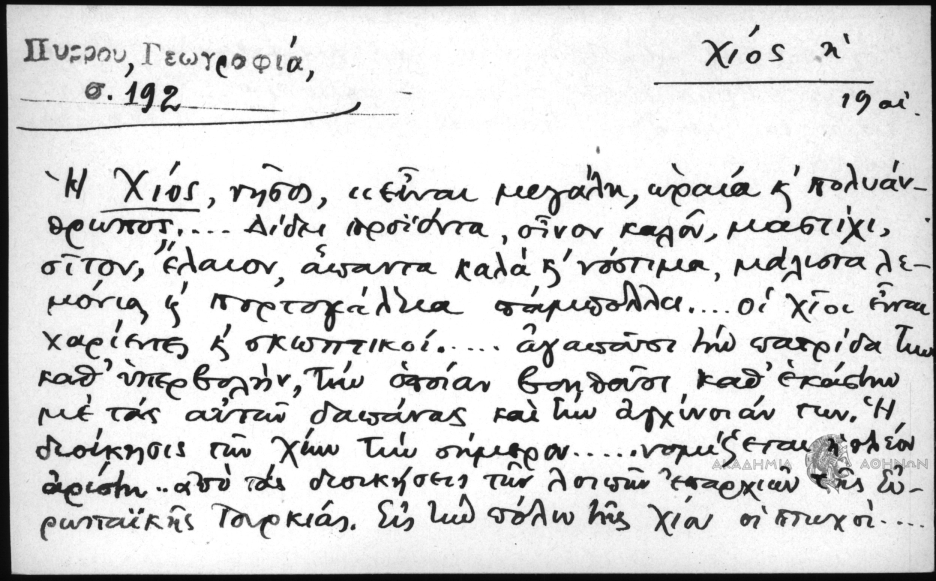 Πυρρου, Γεωγραφία,
σ. 192
Χιός κ'
19 αἰ.
Ἡ Χιός, νῆσος, «εἶναι μεγάλη, ὡραία κ' πολυάν-
θρωπος.... Δίδει προϊόντα, οἶνον καλόν, μαστίχι,
σῖτον, ἔλαιον, ἅπαντα καλά κ' νόστιμα, μάλιστα λε-
μόνια κ' πορτογάλλια πάμπολλα.... οἱ Χῖοι εἶναι
χαρίεντες κ' σκωπτικοί..... ἀγαποῦσι τήν πατρίδα των
καθ' ὑπερβολήν, τήν ὁποίαν βοηθοῦσι καθ' ἑκάστην
μέ τάς αὐτῶν δαπάνας καί τήν ἀγχίνοιάν των. Ἡ
διοίκησις τῶν Χίων τήν σήμερον..... νομίζεται πλέον
ἀρίστη.. ἀπό τάς διοικήσεις τῶν λοιπῶν ἐπαρχιῶν τῆς Εὐ-
ρωπαϊκῆς Τουρκίας. Εἰς τήν πόλιν τῆς Χίου οἱ πτωχοί....
ΑΚΑΔΗΜΙΑ ΑΘΗΝΩΝ